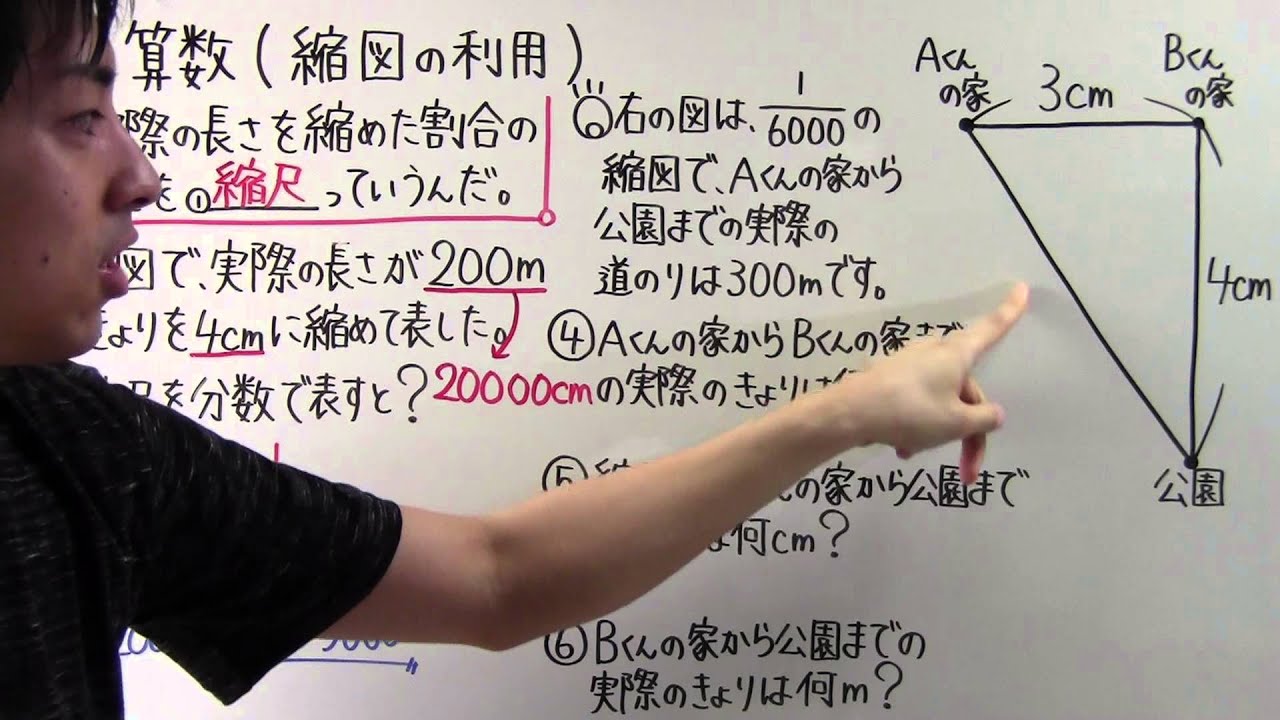 算数(縮図の利用)
際の長さを縮めた割合の
を①縮尺っていうんだ。
図で、実際の長さが200m
きょりを4cmに縮めて表した。
尺を分数で表すと?
20000cm
右の図は、1/6000の
縮図で、Aくんの家から
公園までの実際の
道のりは300mです。
④Aくんの家からBくんの家まで
の実際のきょりは
⑤縮 の家から公園まで
は何cm?
⑥Bくんの家から公園までの
実際のきょりは何m?
Aくん
の家
3cm
Bくん
の家
4cm
公園